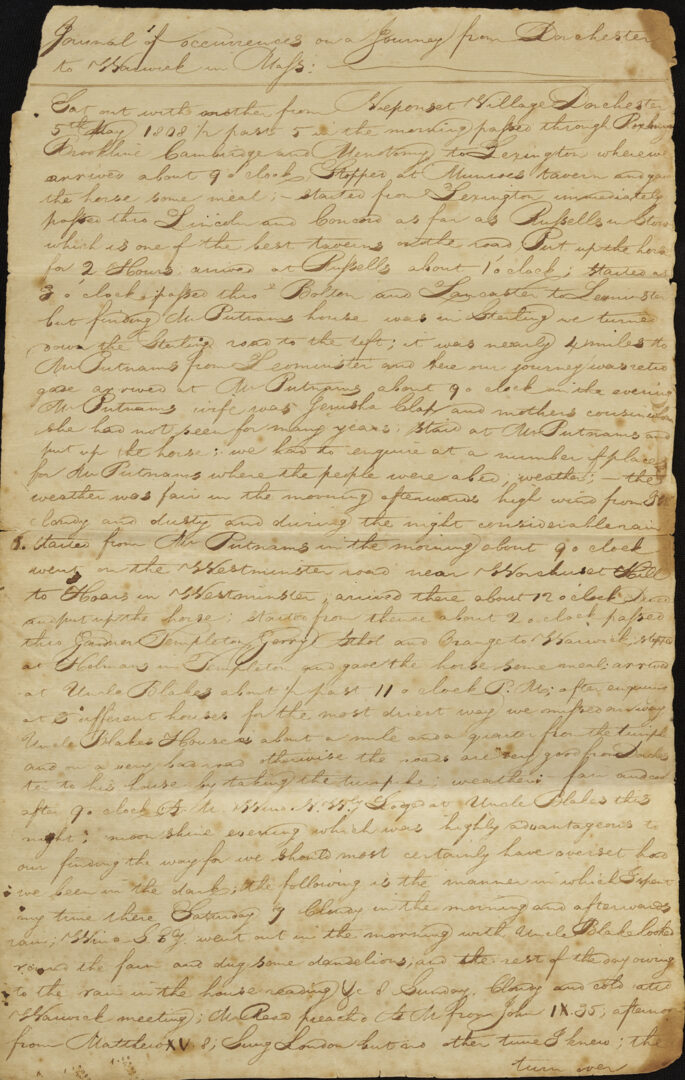 Journal of occurrences on a Journey from Dorchester
to Warwick in Mass:
Sat out with mother from Neponset Village Dorchester
5th May 1808 1/2 past 5 in the morning passed through Roxbury
Brookline Cambridge and Menotomy to Lexington where we
arrived about 9 o clock Stopped at Munroes tavern and gave
the horse some meal; – started from Lexington immediately
passed thro Lincoln and Concord as far as Russells in Stow
which is one of the best taverns on the road Put up the horse
for 2 Hours; arrived at Russells about 1 o clock; started at
3 o clock; passed thro Bolton and Lancaster to Leominster
but finding Mr Putnams house was in Sterling we turned
down the Sterling road to the left; it was nearly 4 miles to
Mr Putnams from Leominster and here our journey was retro
gade arrived at Mr Putnams about 9 o clock in the evening
Mr Putnams wife was Jerusha Clap and mothers cousin whom
she had not seen for many years; staid at Mr Putnams and
put up the horse; we had to enquire at a number of places
for Mr Putnams where the people were abed; weather; – the
weather was fair in the morning afterwards high wind from
cloudy and dusty and during the night considerable rain
6. started from Mr Putnams in the morning about 9 o clock
went on the Westminster road near Worchuset Hill
to Hoars in Westminster; arrived there about 12 o clock
and put up the horse; started from thence about 2 o clock passed
thro Gardner Templeton Gerry Athol and Orange to Warwick, stopped
at Holmans in Templeton and gave the horse some meal; arrived
at Uncle Blakes about 1/2 past 11 o clock P. M; after enquiring
at 3 different houses for the most direct way we missed our way
Uncle Blakes House is about a mile and a quarter from the turnpike
and on a very bad road otherwise the roads are very good from Dorches
ter to his house by taking the turnpike; weather fair and cool
after 9 o clock A. M Wind N.W. Lodged at Uncle Blakes this
night; moon shine evening which was highly advantageous to
our finding the way for we should most certainly have overset had
we been in the dark; the following is the manner in which I spent
my time there Saturday 7 Cloudy in the morning and afterwards
rain; Wind went out in the morning with Uncle Blake looked
round the farm and dug some dandelions, and the rest of the day owing
to the rain in the house reading &c 8 Sunday Cloudy and cold
Warwick meeting; Mr Read preach'd A M from John IX. 35; afternoon
from Matthew XV 8; Sung London but no other tune I knew; the
turn over